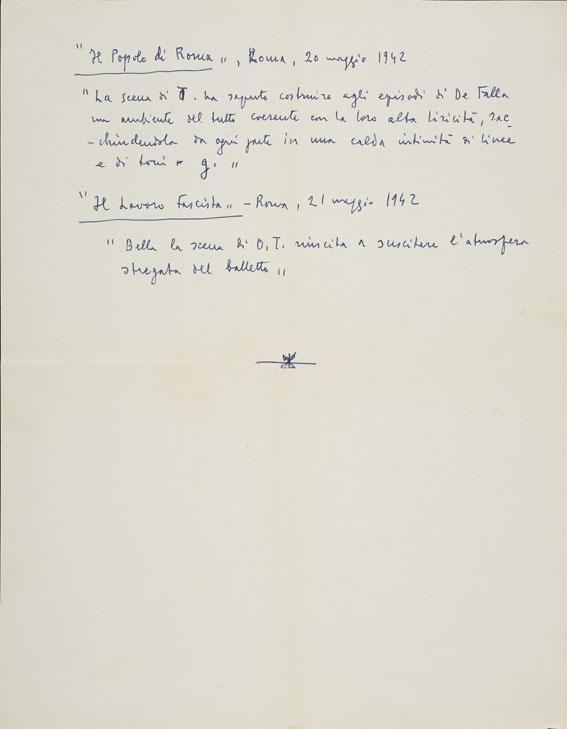 "Il Popolo di Roma", Roma, 20 maggio 1942
"La scena di T. ha saputo costruire agli episodi di De Falla
un ambiente del tutto coerente con la loro alta liricità, rac
-chiudendola da ogni parte in una calda intimità di linee
e di toni g. "
"Il Lavoro Fascista" - Roma, 21 maggio 1942
"Bella la scena di O. T. riuscita a suscitare l'atmosfera
stregata del balletto"